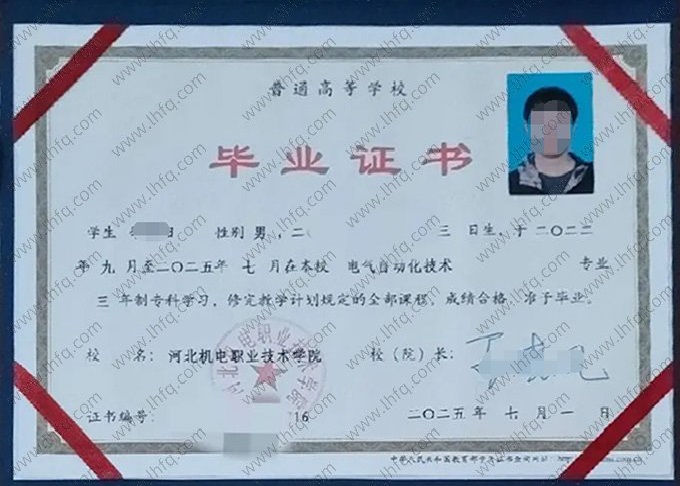 普通高等学校
毕业证书
学生 性别 男，二 三 日生，于二〇二二
年 九 月至二〇二五年 七 月在本校 电气自动化技术 专业
三 年制专科学习，修完教学计划规定的全部课程，成绩合格，准予毕业。
校 名： 河北机电职业技术学院 校（院）长：
河北机电职业技术学院
证书编号： 16 二〇二五 年 七 月 一 日
中华人民共和国教育部学历证书查询网址：
www.lhfq.com